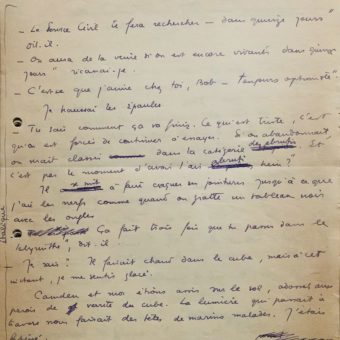 - Le Source Civil te fera rechercher - dans quinze jours"
dit-il.
- On aura de la veine si on est encore vivants dans quinze
jours" ricanai-je.
- C'est ce que j'aime chez toi, Bob - toujours optimiste"
Je haussai les épaules.
- Tu sais comment ça va finir. Ce qui est triste, c'est
qu'on est forcés de continuer à essayer. Si on abandonnait,
on serait classé dans la catégorie des abrutis. Et
c'est pas le moment d'avoir l'air abruti hein?"
Il se mit à faire craquer ses jointures jusqu'à ce que
j'aie les nerfs comme quand on gratte un tableau noir
avec les ongles
- Ça fait trois fois que tu passes dans le
labyrinthe", dit-il.
Je sais? Il faisait chaud dans le cube, mais à cet
instant, je me sentis glacé.
Camden et moi étions assis sur le sol, adossés aux
parois de verite du cube. La lumière qui passait à
travers nous faisait des têtes de marins malades. J'étais